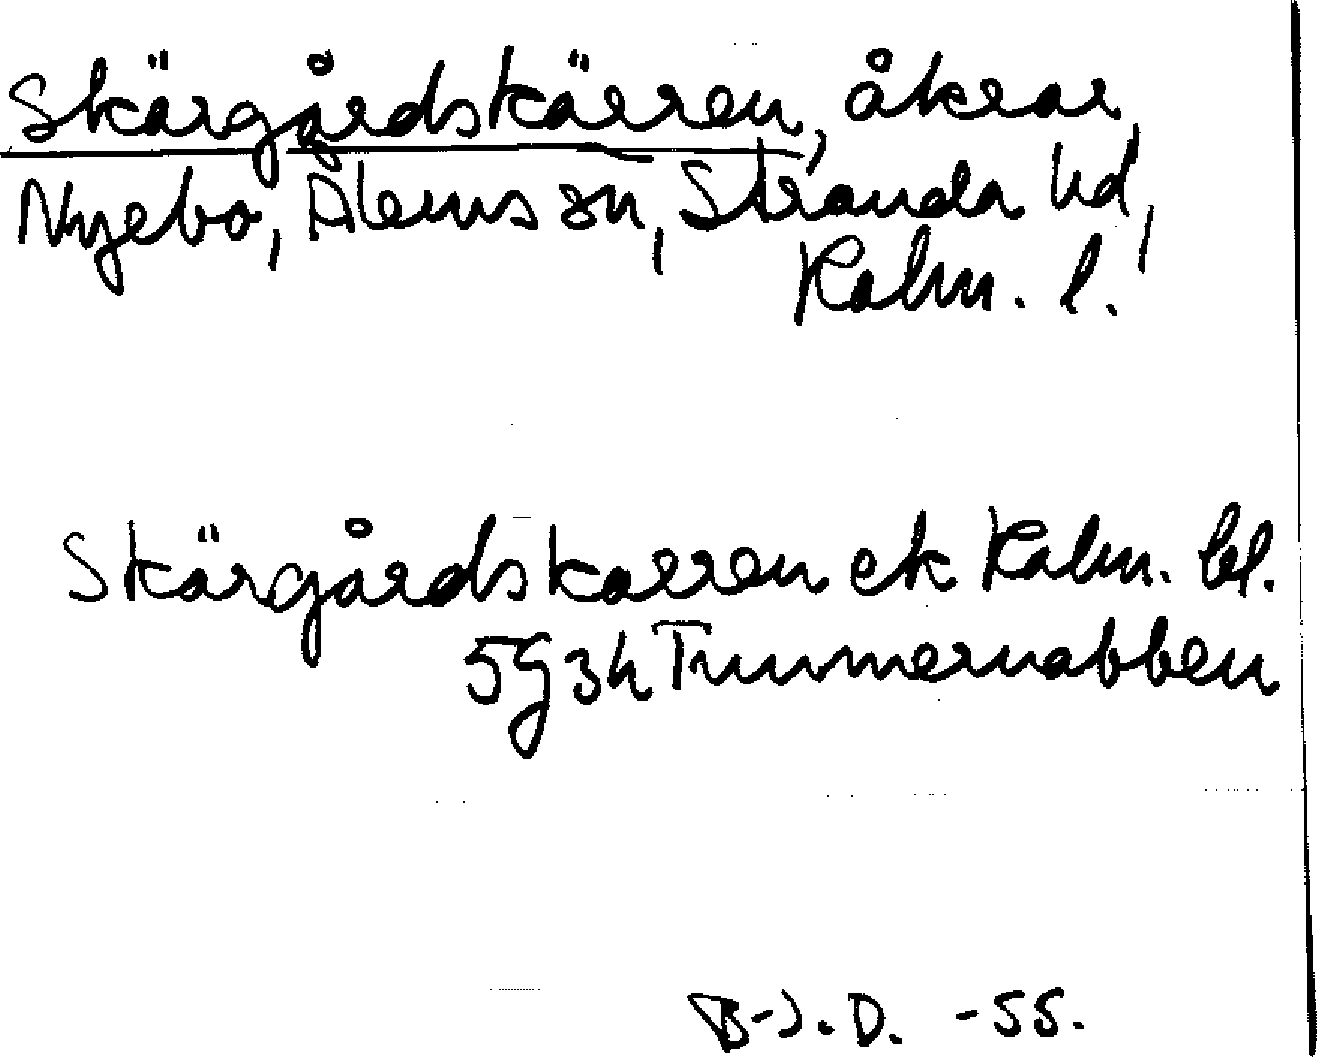 Skärgårdskärren, åkrar,
Nyebo, Ålems sn, Stranda hd,
Kalm. l.
Skärgårdskarren ek Kalm. bl.
5G3h Timmernabben
B-J.D. -55.